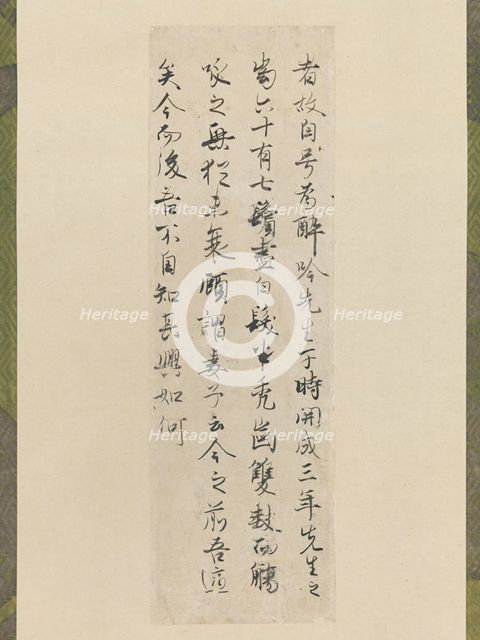 者故自号為酔吟先生于時開成三年先生之
齒六十有七鬚盡白髮半禿齒雙缺而觴
咏之興猶未衰顧謂妻子云今之前吾適
矣今而後吾不自知其興如何
Heritage Heritage
Heritage Heritage Heritage
Heritage Heritage